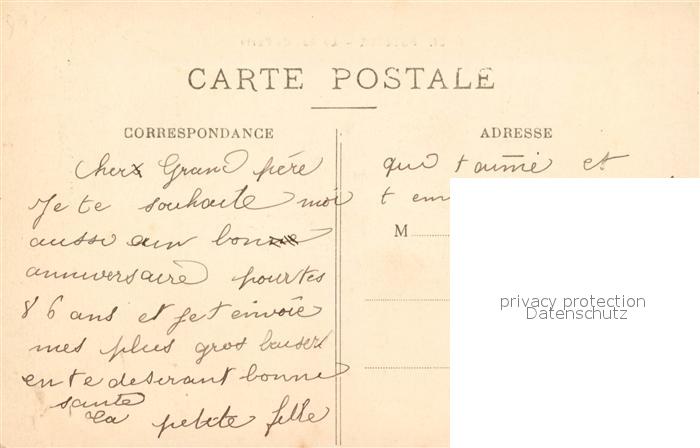 CARTE POSTALE
CORRESPONDANCE
Cher Grand pére
Je te souhaite moi
aussi un bon
anniversaire pour tes
86 ans et Je t envoie
mes plus gros baiser
en te desirant bonne
sante
Ta petite fille
ADRESSE
qui t aime et
t em
M
privacy protection
Datenschutz